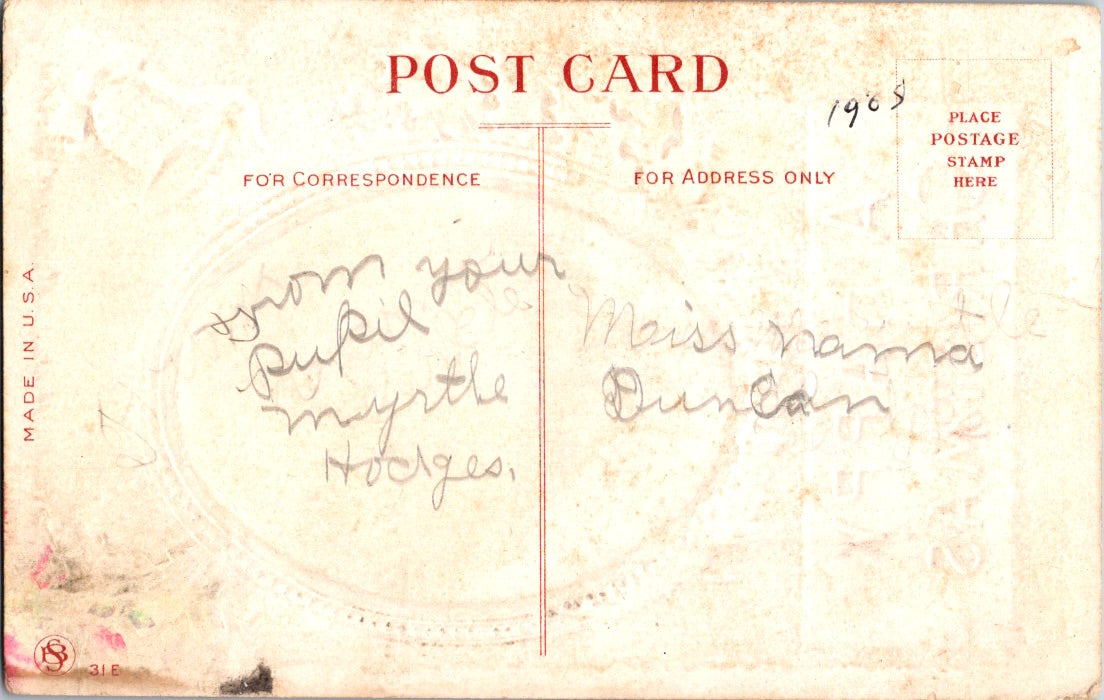 POST CARD
1908
PLACE
POSTAGE
STAMP
HERE
FOR CORRESPONDENCE
FOR ADDRESS ONLY
From your
pupil
Myrtle
Hodges.
Miss Nama
Duncan
MADE IN U.S.A.
31 E